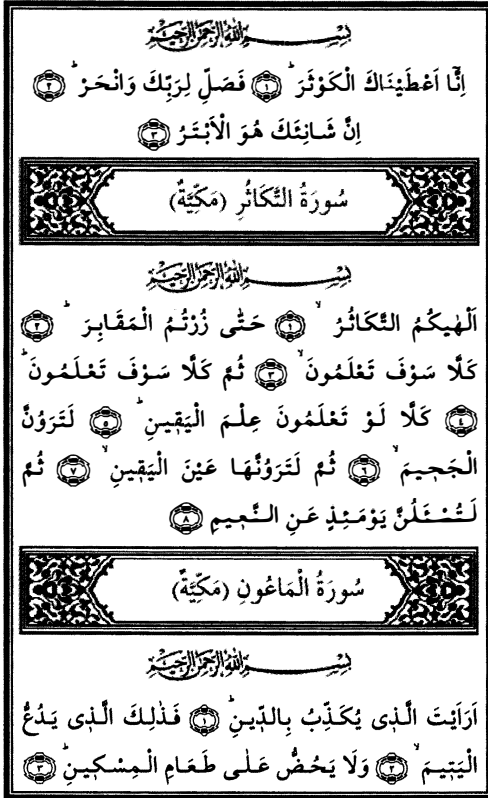 بِسْمِ اللّٰهِ الرَّحْمٰنِ الرَّحِيمِ
اِنَّٓا اَعْطَيْنَاكَ الْكَوْثَرَۜ ﴿١﴾ فَصَلِّ لِرَبِّكَ وَانْحَرْۜ ﴿٢﴾
اِنَّ شَانِئَكَ هُوَ الْاَبْتَرُ ﴿٣﴾
سُورَةُ التَّكَاثُرِ (مَكِّيَّةٌ)
بِسْمِ اللّٰهِ الرَّحْمٰنِ الرَّحِيمِ
اَلْهٰيكُمُ التَّكَاثُرُۙ ﴿١﴾ حَتّٰى زُرْتُمُ الْمَقَابِرَۜ ﴿٢﴾
كَلَّا سَوْفَ تَعْلَمُونَۙ ﴿٣﴾ ثُمَّ كَلَّا سَوْفَ تَعْلَمُونَۜ
﴿٤﴾ كَلَّا لَوْ تَعْلَمُونَ عِلْمَ الْيَقٖينِۜ ﴿٥﴾ لَتَرَوُنَّ
الْجَحٖيمَۙ ﴿٦﴾ ثُمَّ لَتَرَوُنَّهَا عَيْنَ الْيَقٖينِۙ ﴿٧﴾ ثُمَّ
لَتُسْـَٔلُنَّ يَوْمَئِذٍ عَنِ النَّعٖيمِ ﴿٨﴾
سُورَةُ الْمَاعُونِ (مَكِّيَّةٌ)
بِسْمِ اللّٰهِ الرَّحْمٰنِ الرَّحِيمِ
اَرَاَيْتَ الَّذٖى يُكَذِّبُ بِالدّٖينِۜ ﴿١﴾ فَذٰلِكَ الَّذٖى يَدُعُّ
الْيَتٖيمَۙ ﴿٢﴾ وَلَا يَحُضُّ عَلٰى طَعَامِ الْمِسْكٖينِۜ ﴿٣﴾